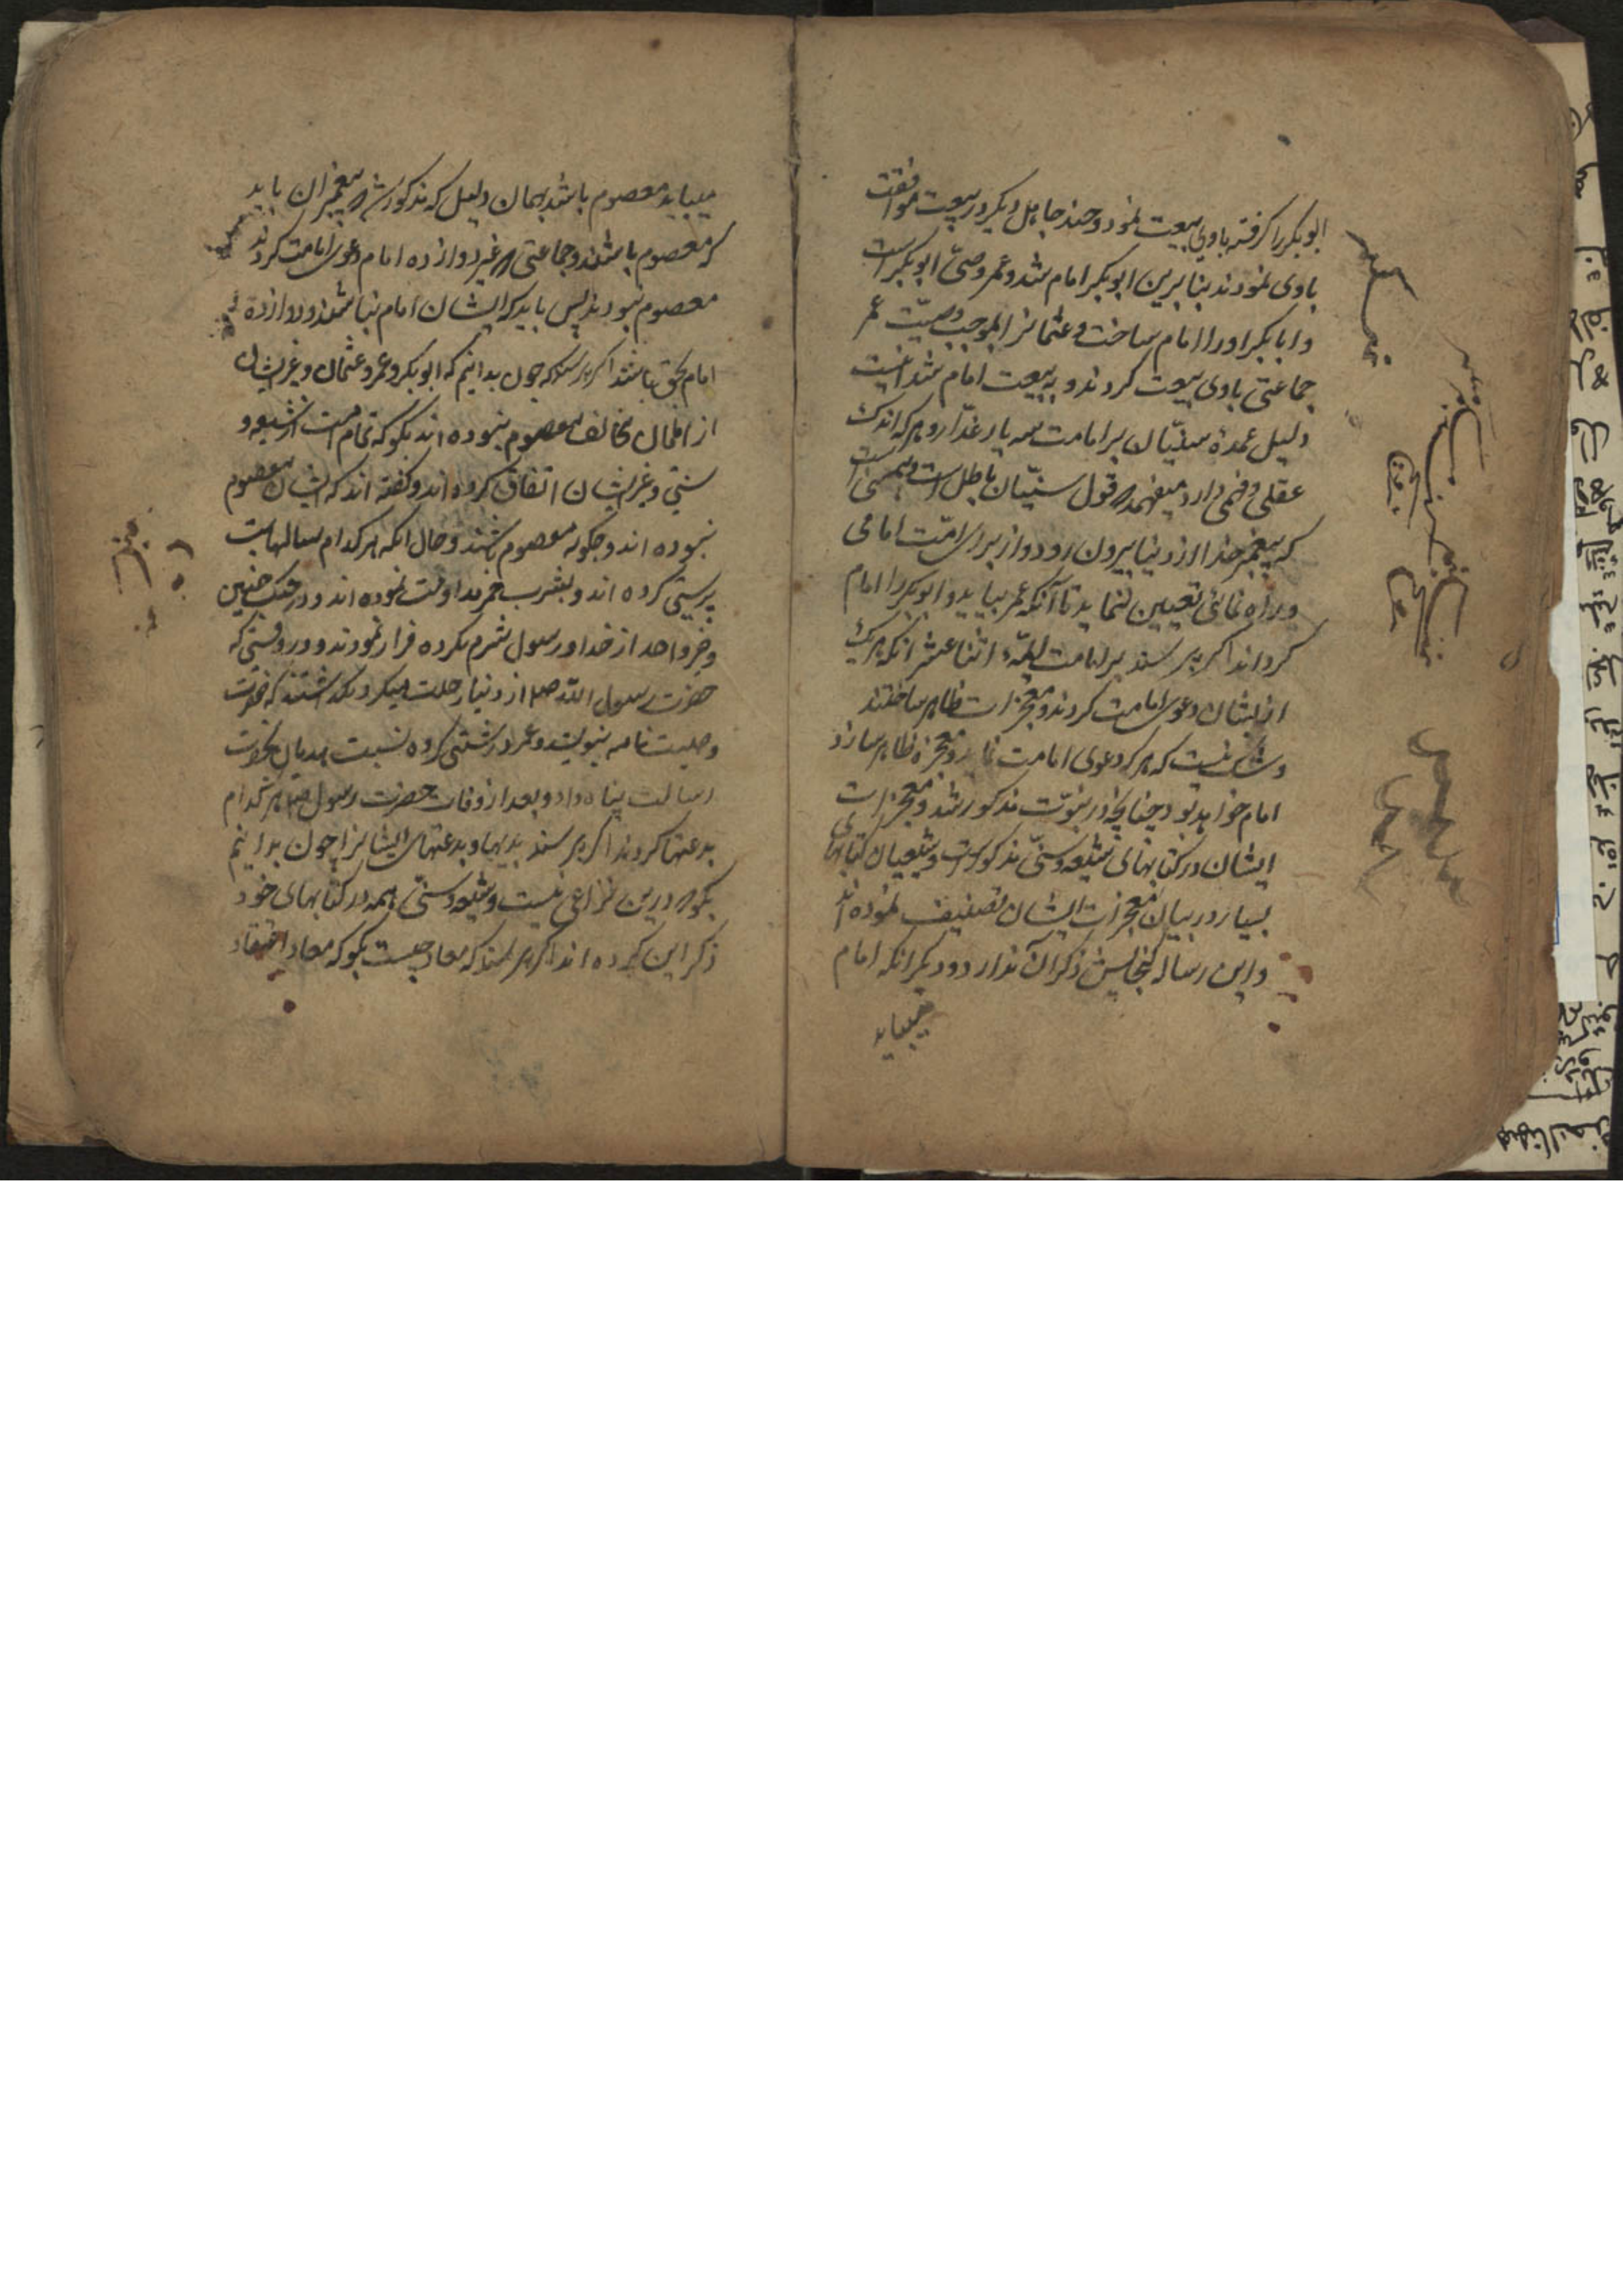 ابوبکر را کرفته باوی بیعت نمود و چند جاهل دیکر در بیعت موافقت
باوی نمودند بنابرین ابوبکر امام شد و عمر وصیّ ابوبکر است
و ابابکر او را امام ساخت و عثمانرا بموجب وصیّت عمر
جماعتی باوی بیعت کردند و به بیعت امام شد اینست
دلیل عمدهٔ سنّیان بر امامت سه یار غدّار و هرکه اندک
عقلی و فهمی دارد میفهمد که قول سنّیان باطل است
که پیغمبر خدا از دنیا بیرون رود و از برای امّت امامی
و راه نمائی تعیین ننماید تا آنکه عمر بیاید و ابوبکر را امام
کرداند اکر پرسند بر امامت ایمّهٔ اثنا عشر انکه هریک
از ایشان دعوی امامت کردند و معجزات ظاهر ساختند
و شک نیست که هرکه دعوی امامت نماید و معجزه ظاهر سازد
امام خواهد بود چنانچه در نبوّت مذکور شد و معجزات
ایشان در کتابهای شیعه و سنّی مذکور است و شیعیان کتابهای
بسیار در بیان معجزات ایشان تصنیف نموده اند
و این رساله کنجایش ذکر آن ندارد و دیکر انکه امام
میباید
میباید معصوم باشد بهمان دلیل که مذکور شد که پیغمبران باید
که معصوم باشند و جماعتی که غیر دوازده امام دعوی امامت کردند
معصوم نبودند پس باید که ایشان امام نباشند و دوازده
امام بحق باشند اکر پرسند که چون بدانیم که ابوبکر و عمر و عثمان و غیر ایشان
از اهل مخالف معصوم نبوده اند بکو که تمام امت از شیعه و
سنّی و غیر ایشان اتفاق کرده اند و کفته اند که ایشان معصوم
نبوده اند و چکونه معصوم باشند و حال انکه هر کدام سالها بت
پرستی کرده اند و بشرب خمر مداومت نموده اند و در جنک حنین
و خیبر و احد از خدا و رسول شرم نکرده فرار نمودند و در وقتی که
حضرت رسول الله صلعم از دنیا رحلت میکرد نکذاشتند که حضرت
وصیت نامه بنویسد و عمر درشتی کرده نسبت هذیان بحضرت
رسالت پناه داد و بعد از وفات حضرت رسول صلعم هر کدام
بدعتها کردند اکر پرسند بدیها و بدعتهای ایشانرا چون بدانیم
بکو که درین نزاعی نیست و شیعه و سنّی همه در کتابهای خود
ذکر این کرده اند اکر پرسند که معاد چیست بکو که معاد اعتقاد